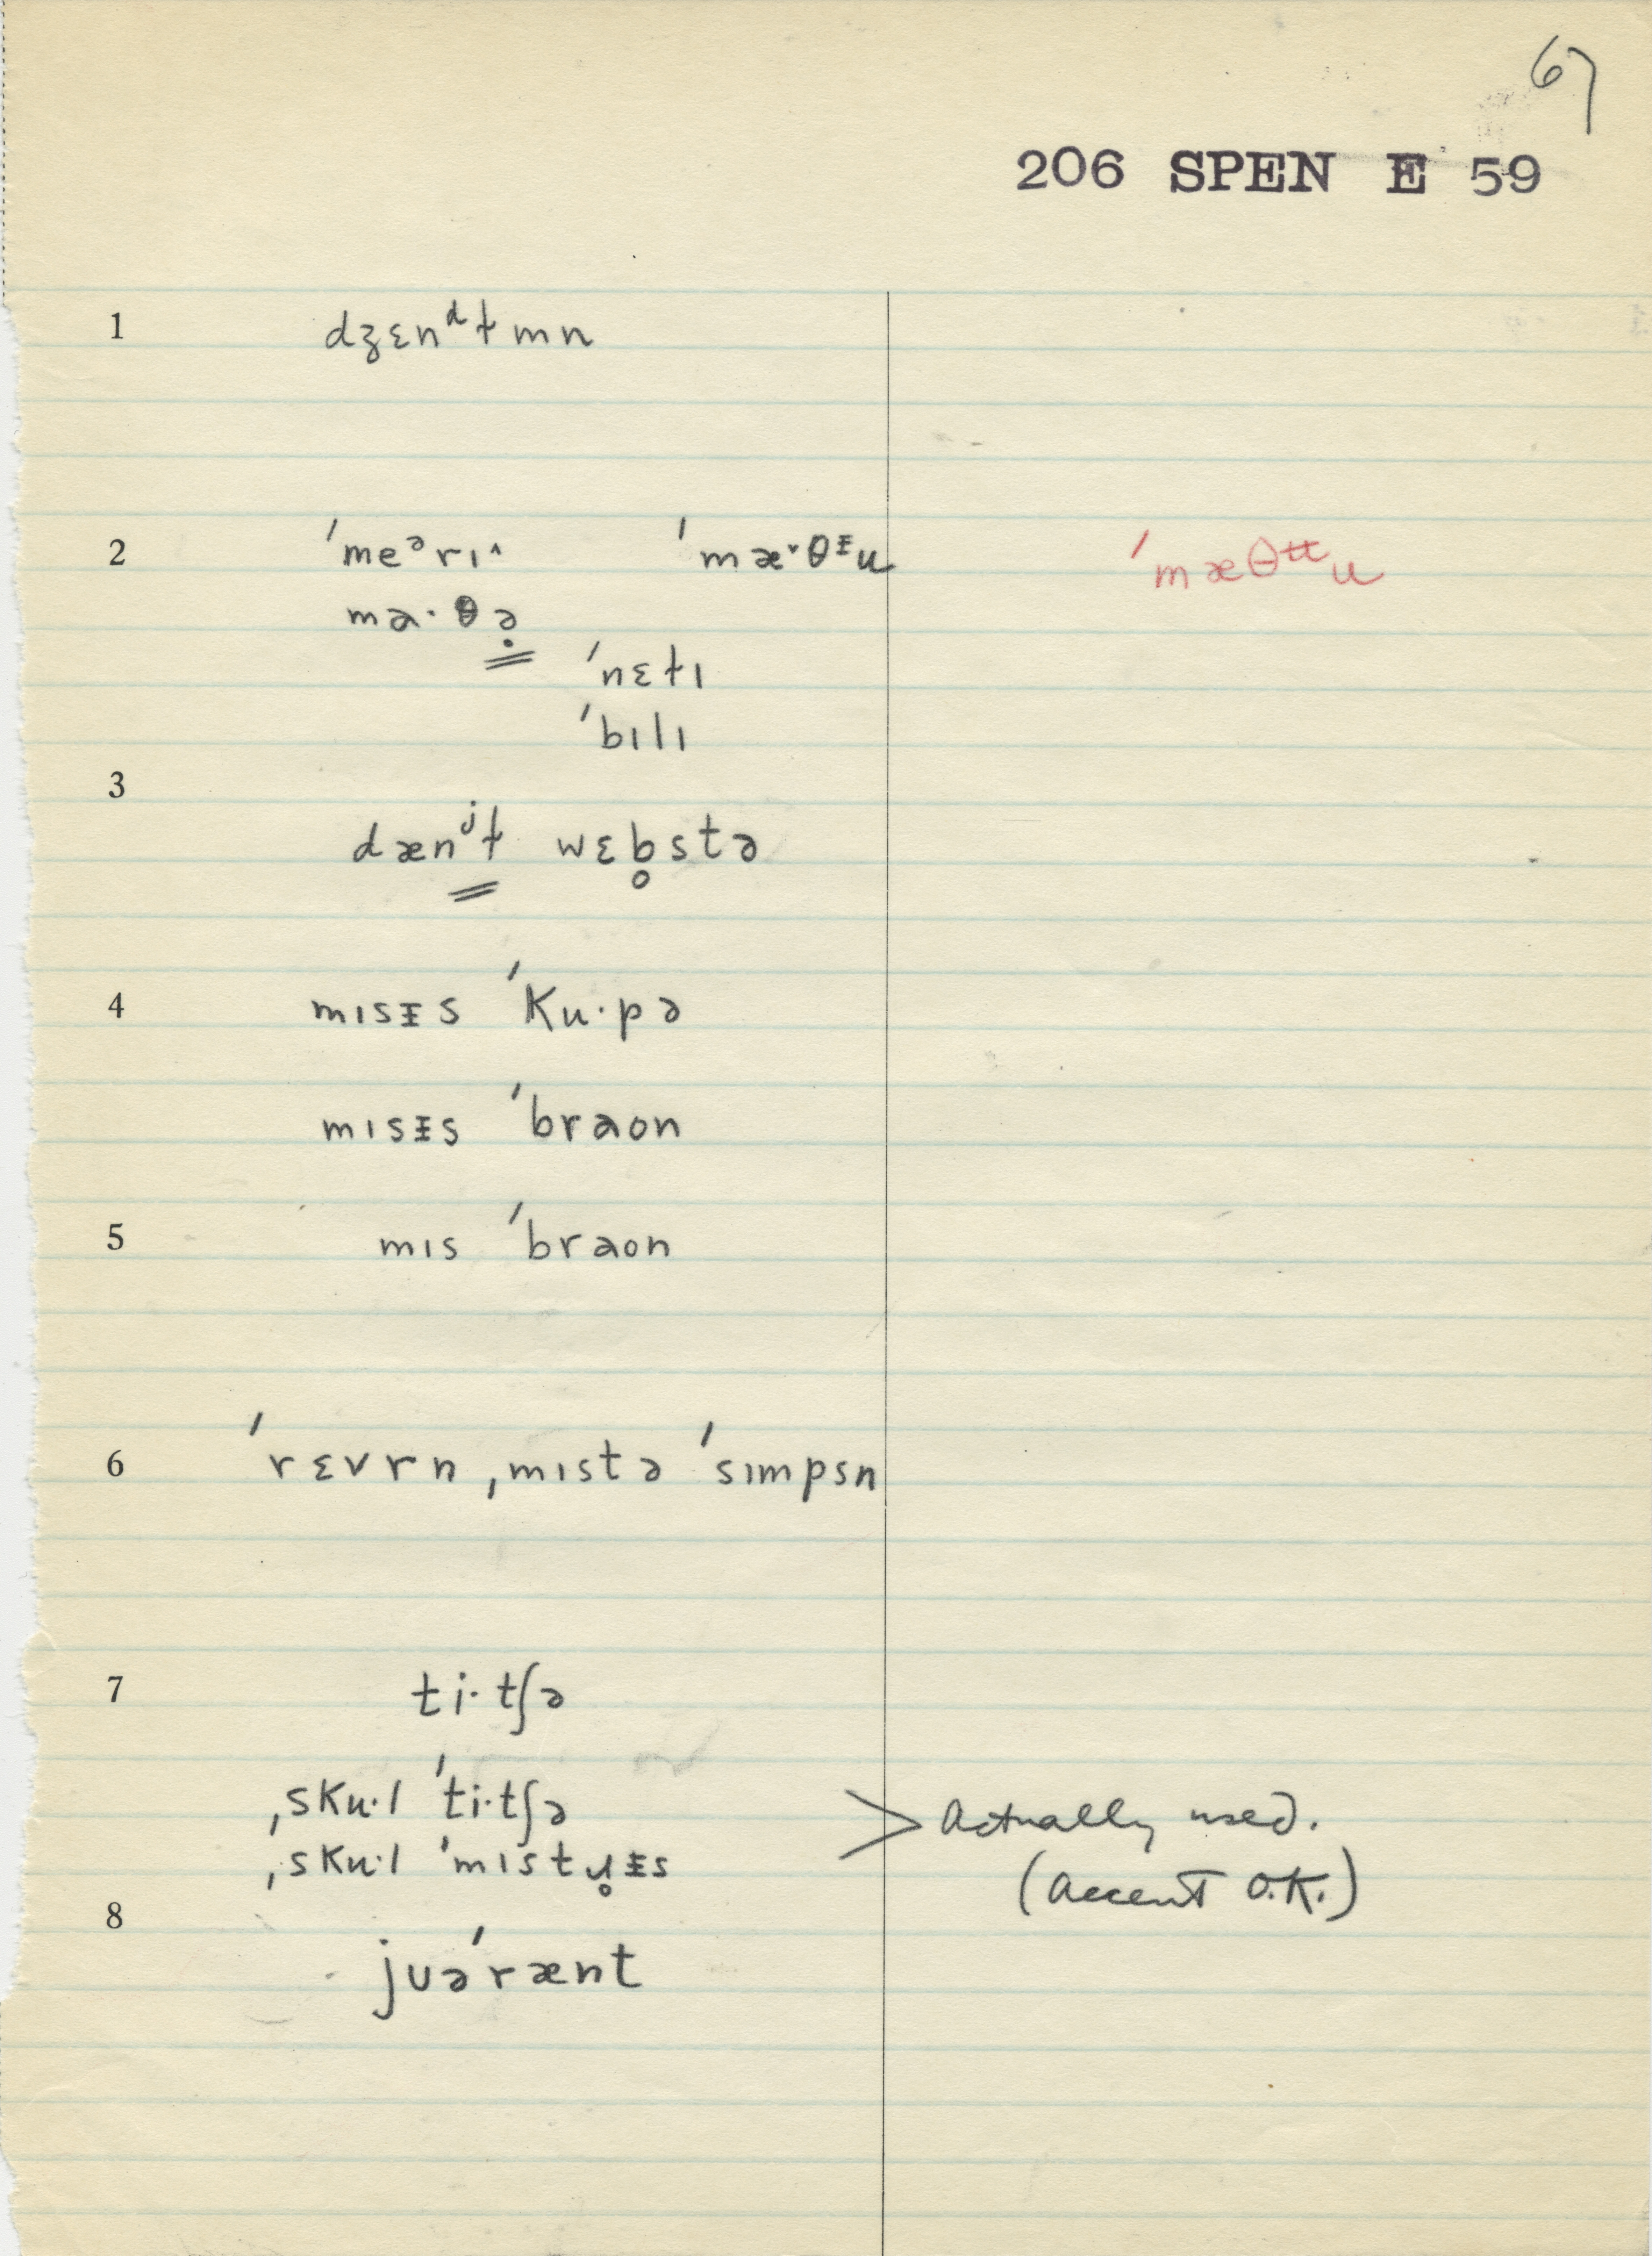 67
206 SPEN E 59
1 dʒɛnᵈɫmn
2 ˈmeᵊrɪ˄ ˈmæ˅θᶧu ˈmæθᵚu
ma·θə̣
ˈnɛɫɪ
ˈbɪlɪ
3
dænʲɫ wɛb̥stə
4 mɪsᵻs ˈku·pə
mɪsᵻs ˈbraon
5 mɪs ˈbraon
6 ˈrɛvrn ˌmɪstə ˈsɪmpsn
7 ti·tʃə
ˌsku·l ˈti·tʃə > Actually used.
ˌsku·l ˈmɪstɹ̥ᵻs (accent O.K.)
8
juəˈrænt